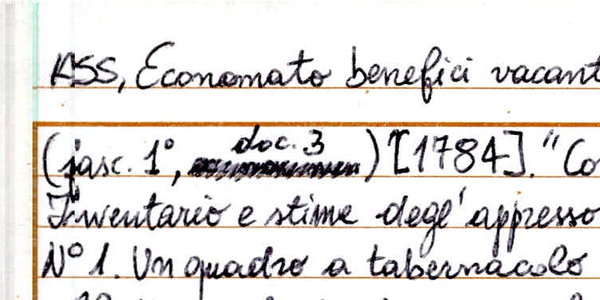 ASS, Economato benefici vacant
(fasc. 1°, doc. 3) [1784]. "Co
Inventario e stime degl'appresso
N° 1. Un quadro a tabernacolo